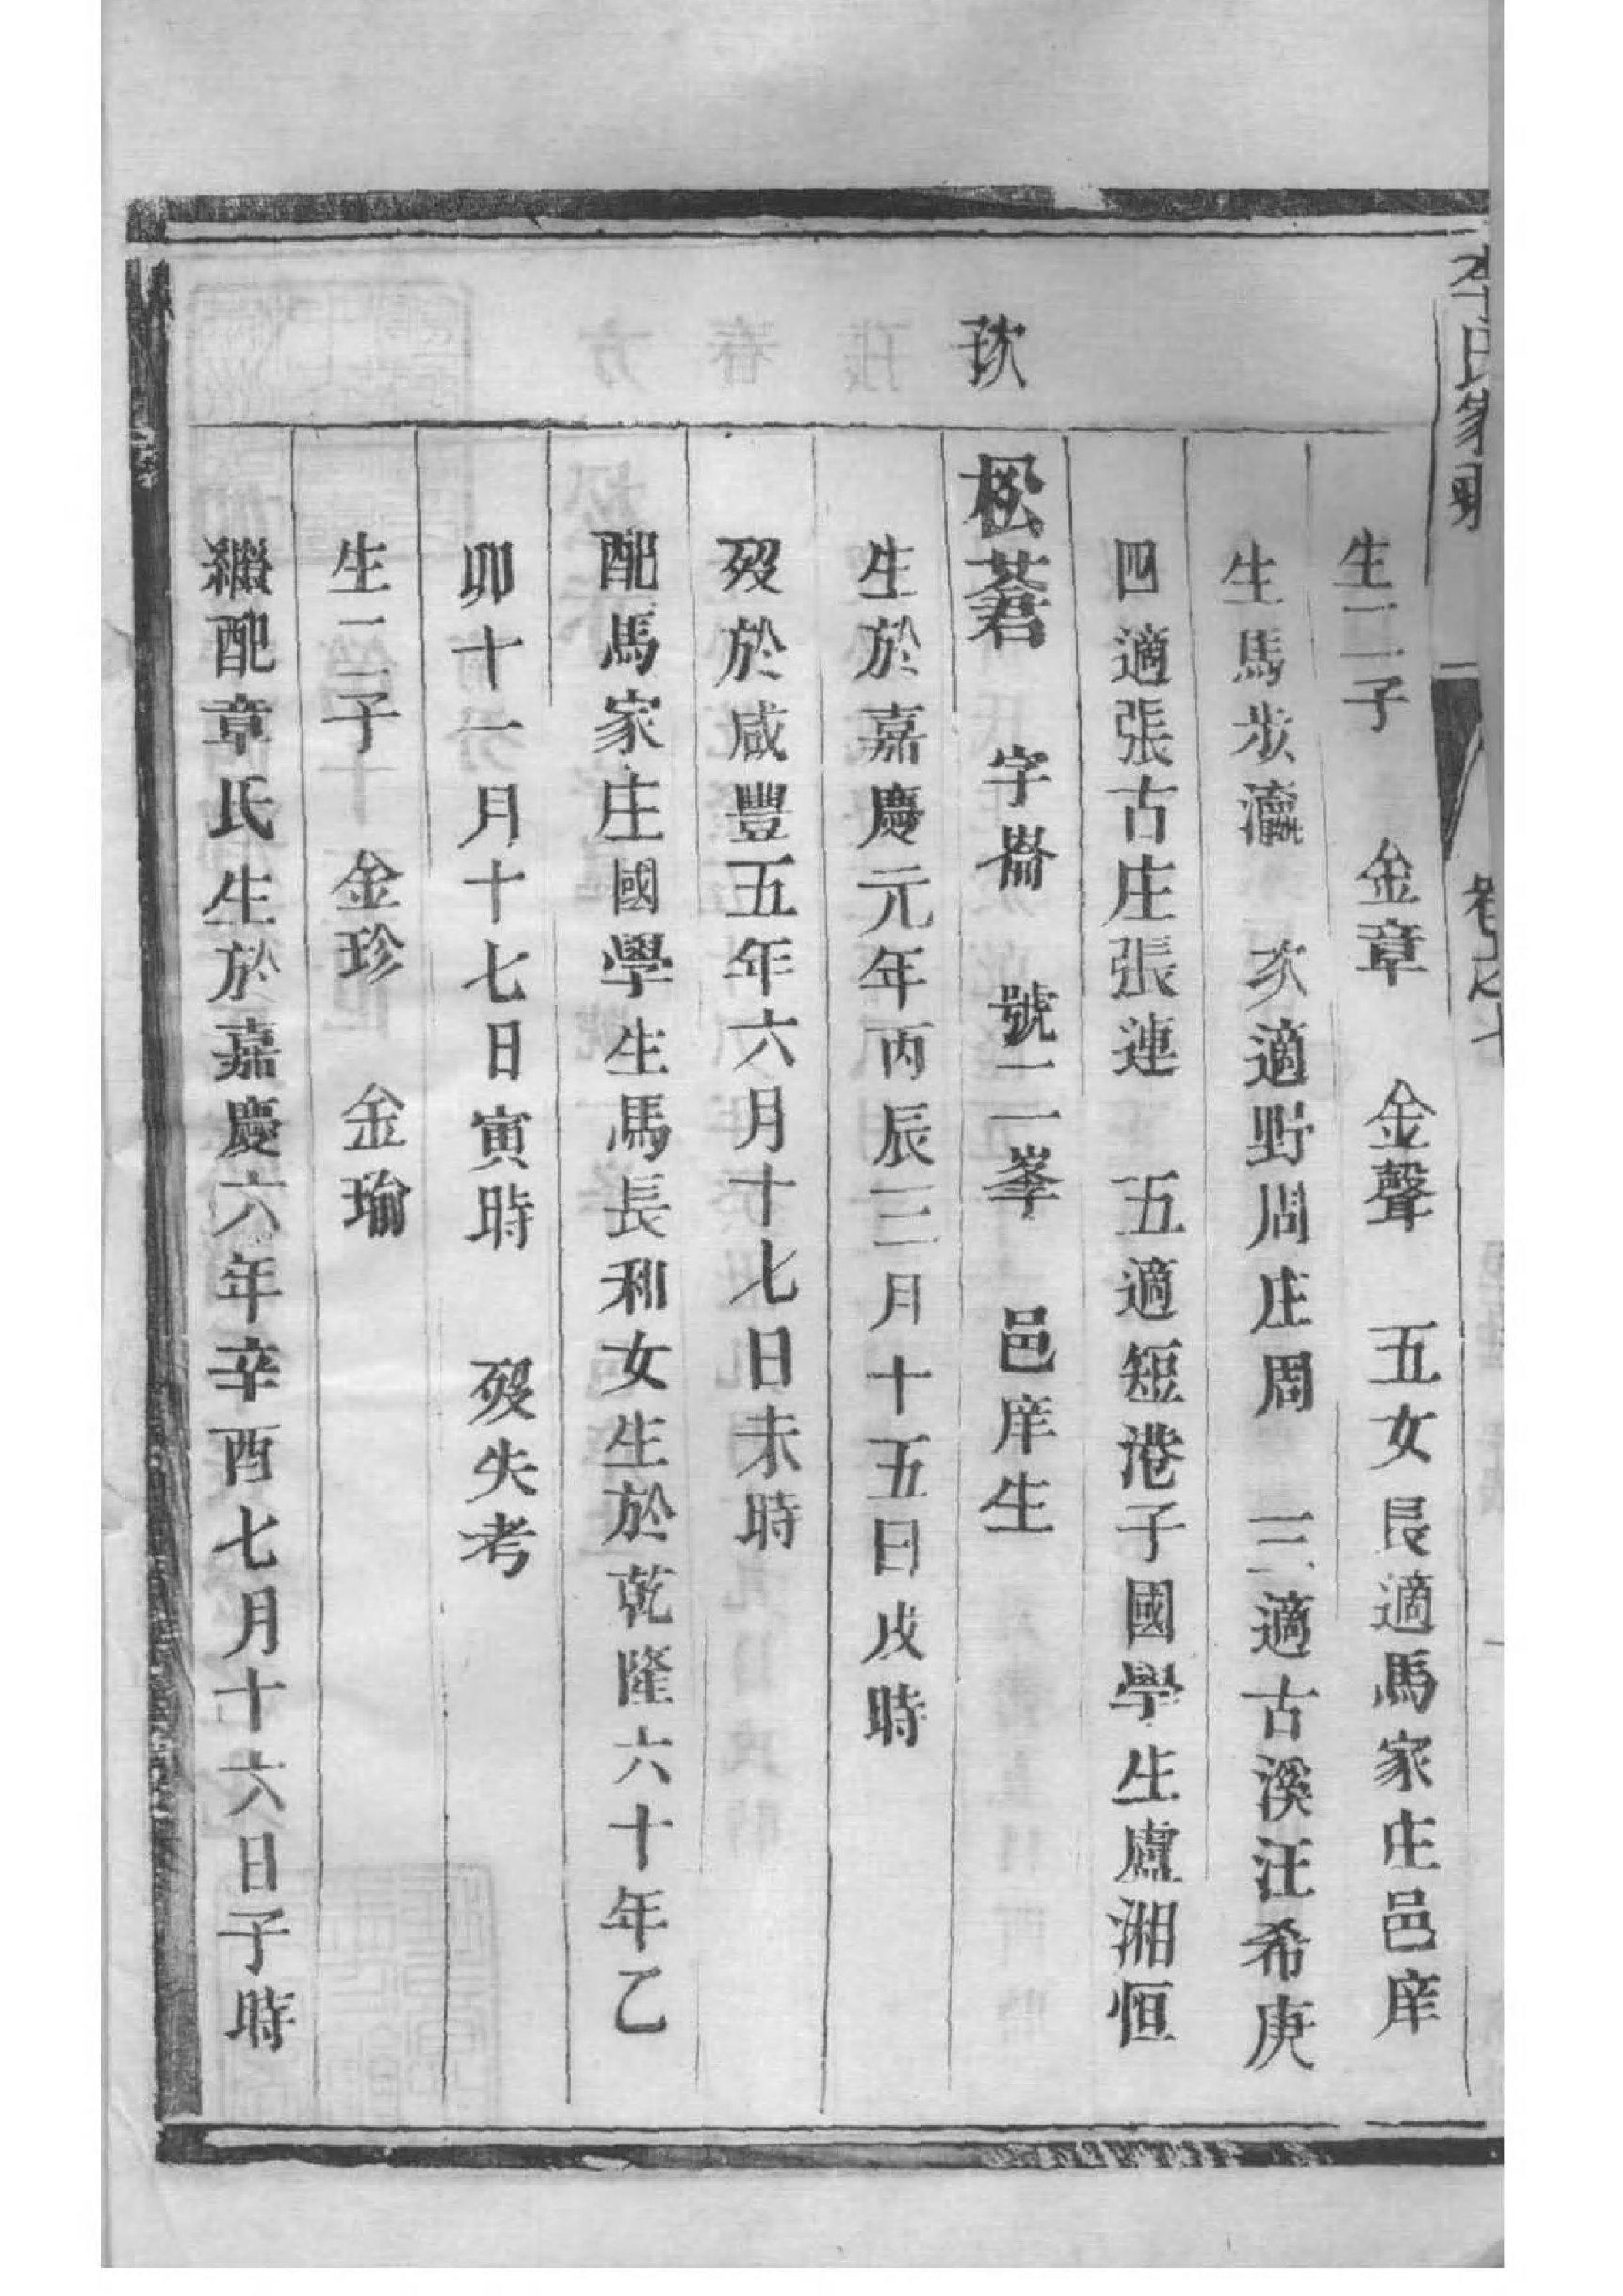 李氏家 卷之七
生二子 金章 金聲 五女長適馬家庄邑庠
生馬步瀛 次適野周庄周 三適古溪汪希庚
四適張古庄張連 五適短港子國學生盧湘恒
松蒼 字崙 號二峯 邑庠生
生於嘉慶元年丙辰三月十五日戌時
歿於咸豐五年六月十七日未時
配馬家庄國學生馬長和女生於乾隆六十年乙
卯十一月十七日寅時 歿失考
生二子 金珍 金瑜
繼配章氏生於嘉慶六年辛酉七月十六日子時